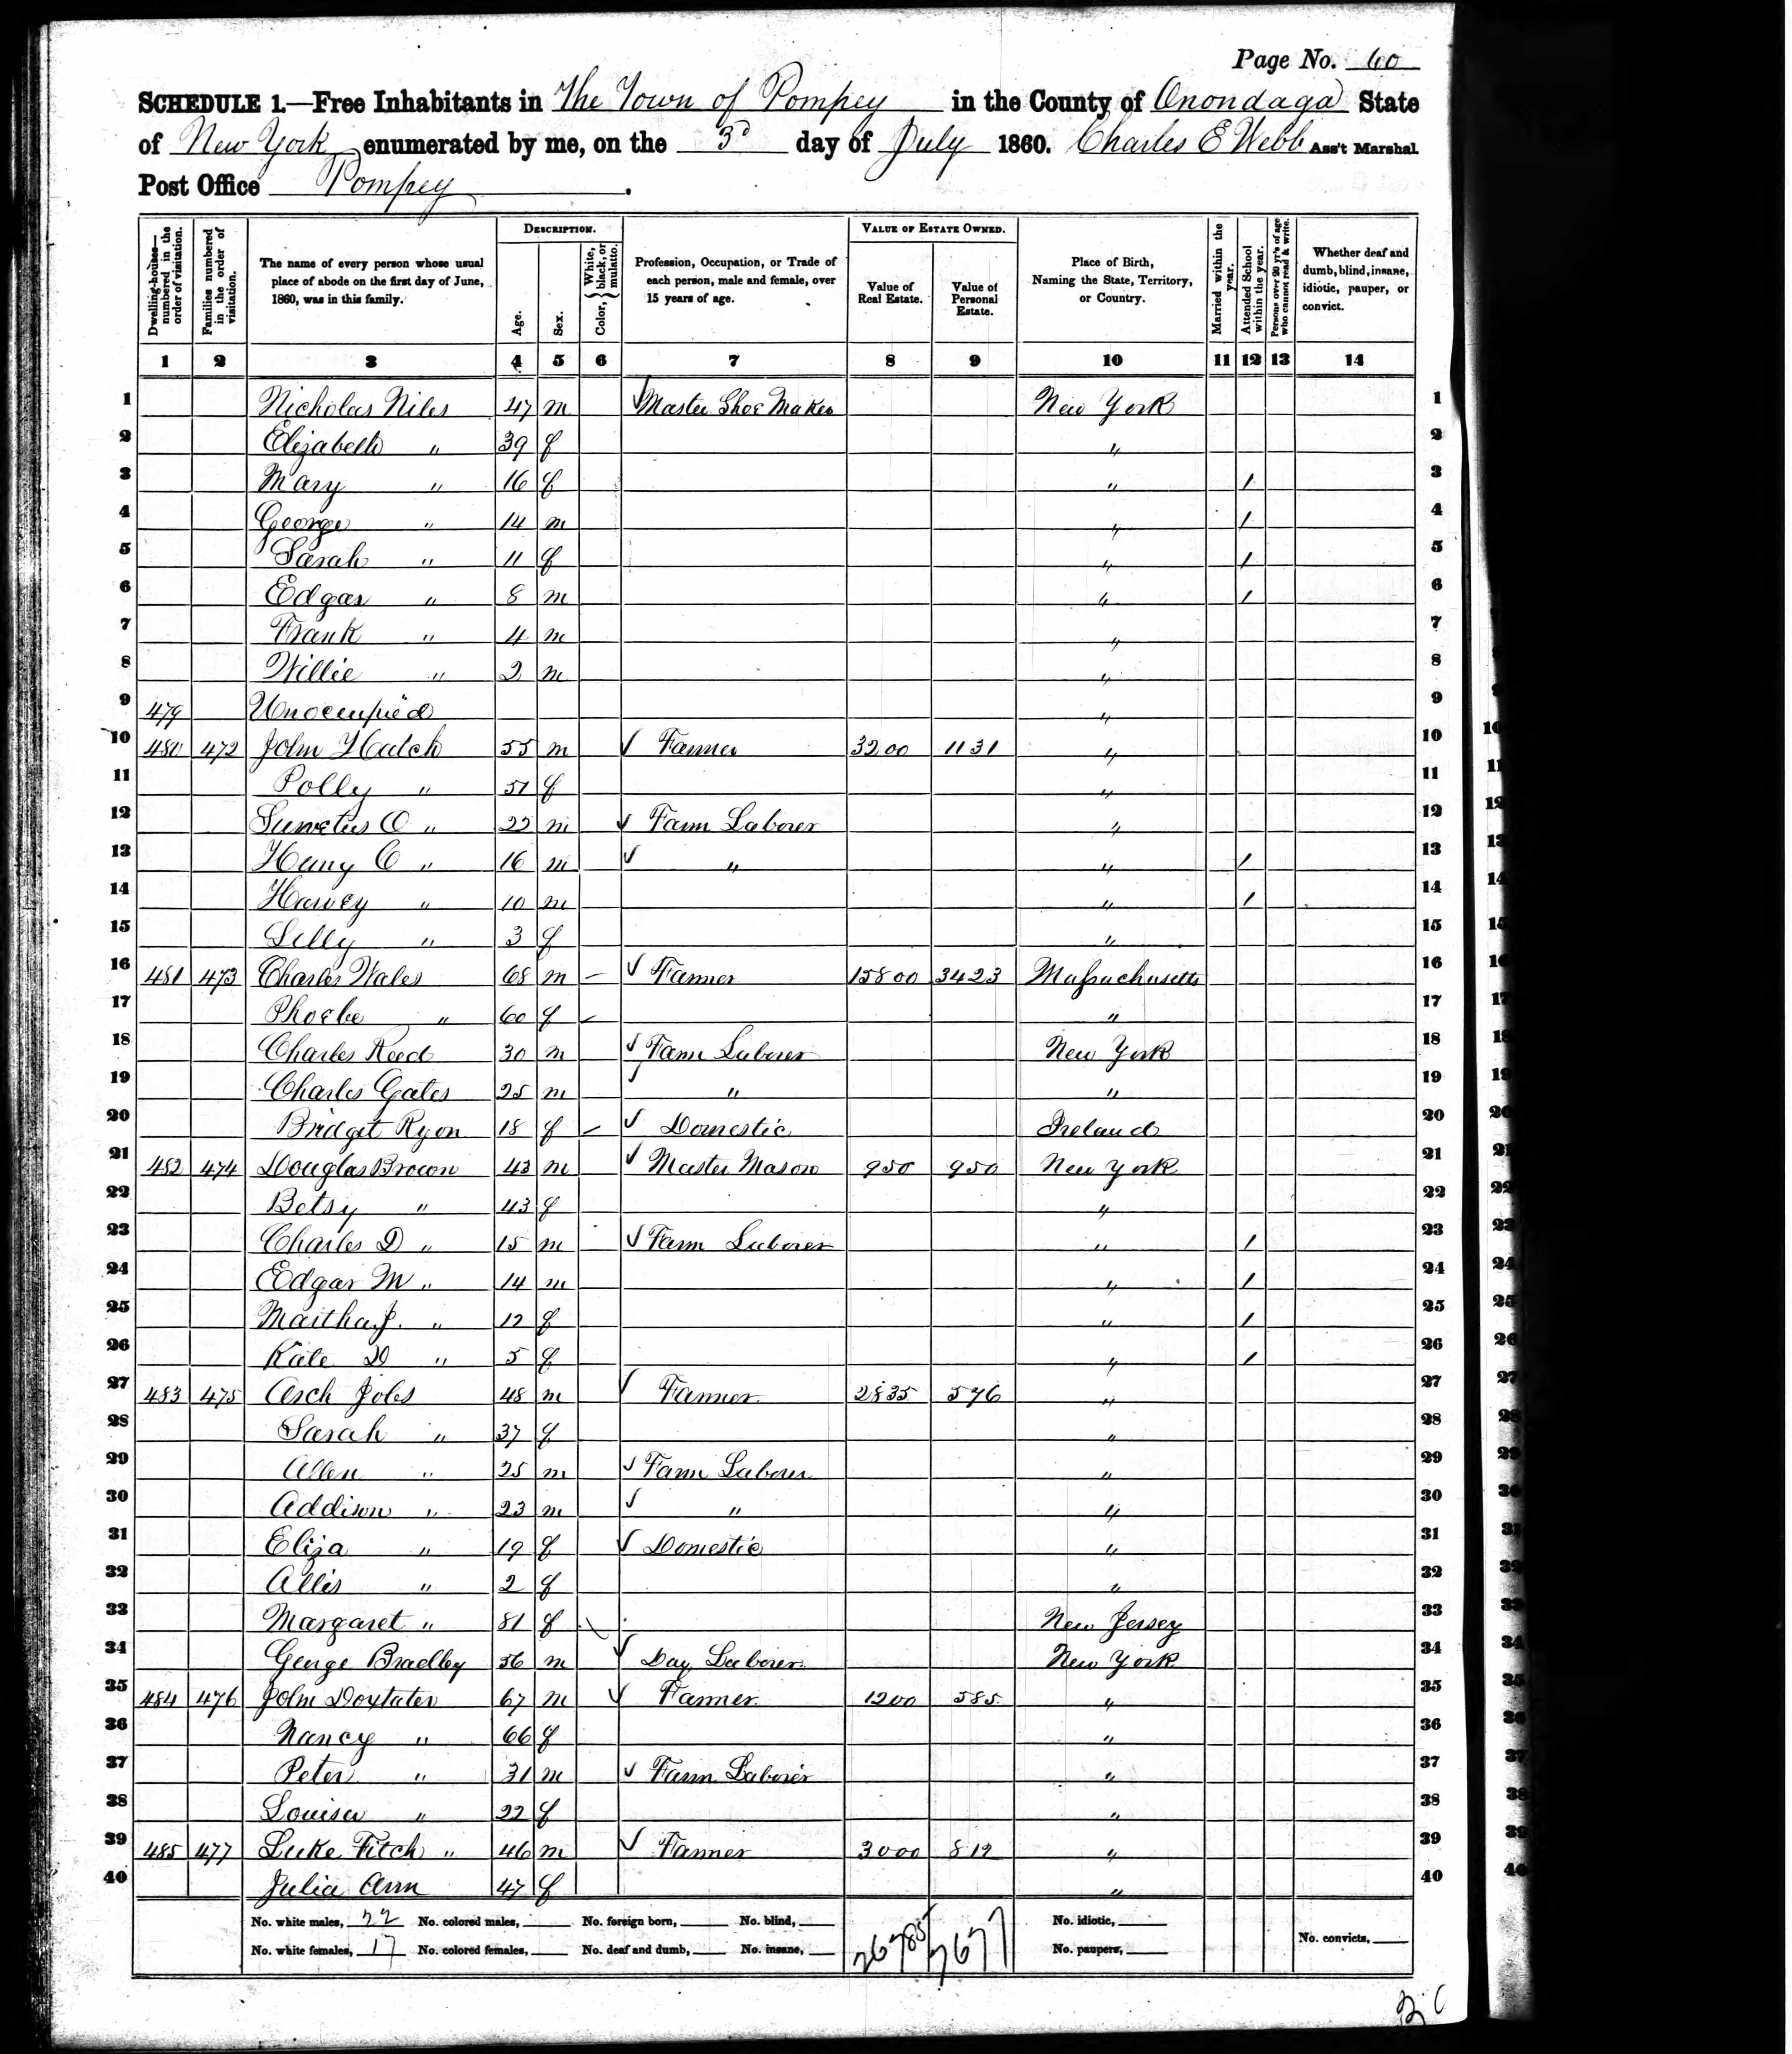 Page No. 60
SCHEDULE 1.—Free Inhabitants in The Town of Pompey in the County of Onondaga State
of New York enumerated by me, on the 3d day of July 1860. Charles E Webb Ass't Marshal.
Post Office Pompey.
Dwelling-houses—numbered in the order of visitation. Families numbered in the order of visitation. The name of every person whose usual place of abode on the first day of June, 1860, was in this family. DESCRIPTION. Age. Sex. Color, { White, black, or mulatto. Profession, Occupation, or Trade of each person, male and female, over 15 years of age. VALUE OF ESTATE OWNED. Value of Real Estate. Value of Personal Estate. Place of Birth, Naming the State, Territory, or Country. Married within the year. Attended School within the year. Persons over 20 yr's of age who cannot read & write. Whether deaf and dumb, blind, insane, idiotic, pauper, or convict.
1 2 3 4 5 6 7 8 9 10 11 12 13 14
1 Nicholas Niles 47 m Master Shoe Maker New York 1
2 Elizabeth " 39 f " 2
3 Mary " 16 f " 1 3
4 George " 14 m " 1 4
5 Sarah " 11 f " 1 5
6 Edgar " 8 m " 1 6
7 Frank " 4 m " 7
8 Willie " 2 m " 8
9 479 Unoccupied " 9
10 480 472 John Hatch 55 m Farmer 3200 1131 " 10
11 Polly " 51 f " 11
12 O " 22 m Farm Laborer " 12
13 Henry C " 16 m " " 1 13
14 Harvey " 10 m " 1 14
15 Lilly " 3 f " 15
16 481 473 Charles Wales 68 m Farmer 15800 3423 Massachusetts 16
17 Phoebe " 60 f " 17
18 Charles Reed 30 m Farm Laborer New York 18
19 Charles Gates 25 m " " 19
20 Bridget Ryon 18 f Domestic Ireland 20
21 482 474 Douglas Brown 43 m Master Mason 950 950 New York 21
22 Betsy " 43 f " 22
23 Charles D " 15 m Farm Laborer " 1 23
24 Edgar M " 14 m " 1 24
25 Martha J. " 12 f " 1 25
26 Kate D " 5 f " 1 26
27 483 475 Asch Jobs 48 m Farmer 2835 576 " 27
28 Sarah " 37 f " 28
29 Allen " 25 m Farm Laborer " 29
30 Addison " 23 m " " 30
31 Eliza " 19 f Domestic " 31
32 Allis " 2 f " 32
33 Margaret " 81 f New Jersey 33
34 George Bradley 56 m Day Laborer New York 34
35 484 476 John Doxtater 67 m Farmer 1200 585 " 35
36 Nancy " 66 f " 36
37 Peter " 31 m Farm Laborer " 37
38 Louisa " 22 f " 38
39 485 477 Luke Fitch " 46 m Farmer 3000 812 " 39
40 Julia Ann 47 f " 40
No. white males, 22 No. colored males, No. foreign born, No. blind, 26985 7677 No. idiotic,
No. white females, 17 No. colored females, No. deaf and dumb, No. insane, No. paupers, No. convicts,